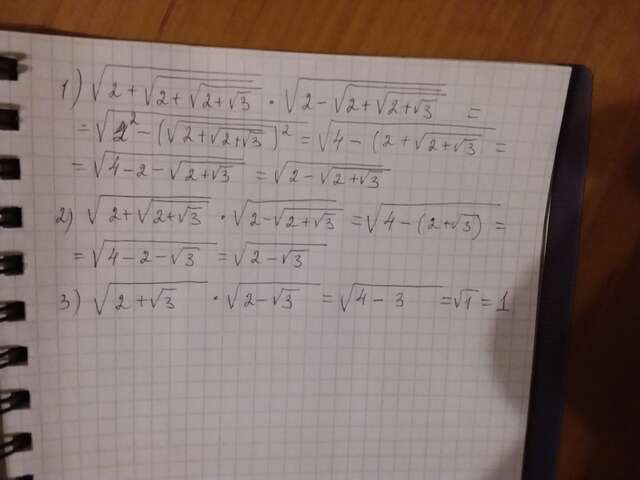 1) √(2+√(2+√(2+√3))) · √(2-√(2+√(2+√3))) =
= √(2² - (√(2+√(2+√3)))²) = √(4-(2+√(2+√3)) =
= √(4-2-√(2+√3)) = √(2-√(2+√3))
2) √(2+√(2+√3)) · √(2-√(2+√3)) = √(4-(2+√3)) =
= √(4-2-√3) = √(2-√3)
3) √(2+√3) · √(2-√3) = √(4-3) = √1 = 1